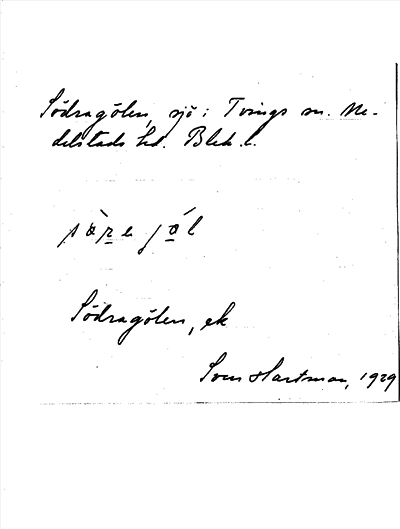 Södragölen, sjö i Tvings sn. Me-
delstads hd. Blek. l.
sö̀re jó̱l
Södragölen, ek
Sven Hartman, 1929